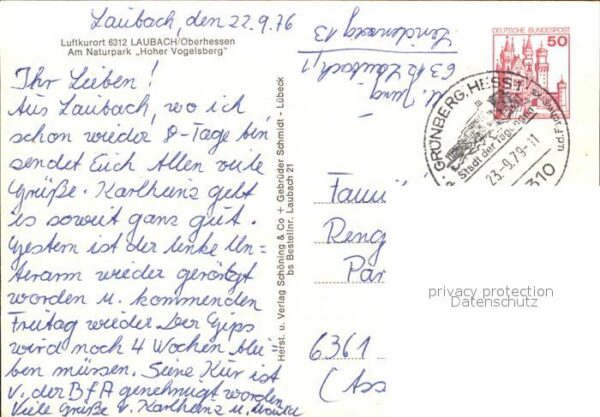 Laubach, den 22.9.76
Luftkurort 6312 LAUBACH/Oberhessen
Am Naturpark „Hoher Vogelsberg"
Ihr Lieben!
Aus Laubach, wo ich
schon wieder 8-Tage bin
sendet Euch Allen viele
Grüße. Karlheinz geht
es soweit ganz gut.
Gestern ist der linke Un=
terarm wieder geröntgt
worden u. kommenden
Freitag wieder. Der Gips
wird noch 4 Wochen blei
ben müssen. Seine Kur ist
v. der BfA genehmigt worden
Viele Grüße v. Karlheinz u.
Herst. u. Verlag Schöning & Co + Gebrüder Schmidt - Lübeck
bs Bestellnr. Laubach 21
Jung
6312 Laubach 1
13
DEUTSCHE BUNDESPOST
50
GRÜNBERG, HESS 1
Stadt der
23.-9.79-11
310
Fami
Reng
Par
6361
(Ass
privacy protection
Datenschutz